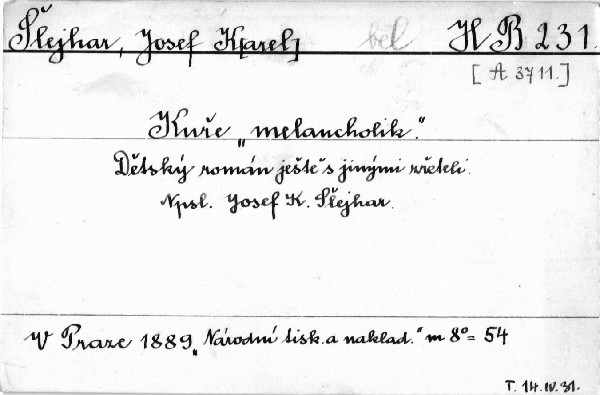 Šlejhar, Josef K[arel] bel HB 231.
[A 3711.]
Kuře „melancholik."
Dětský román ještě s jinými zřeteli.
Npsl. Josef K. Šlejhar.
V Praze 1889 „Národní tisk. a naklad." m 8° = 54
T. 14.IV.31.